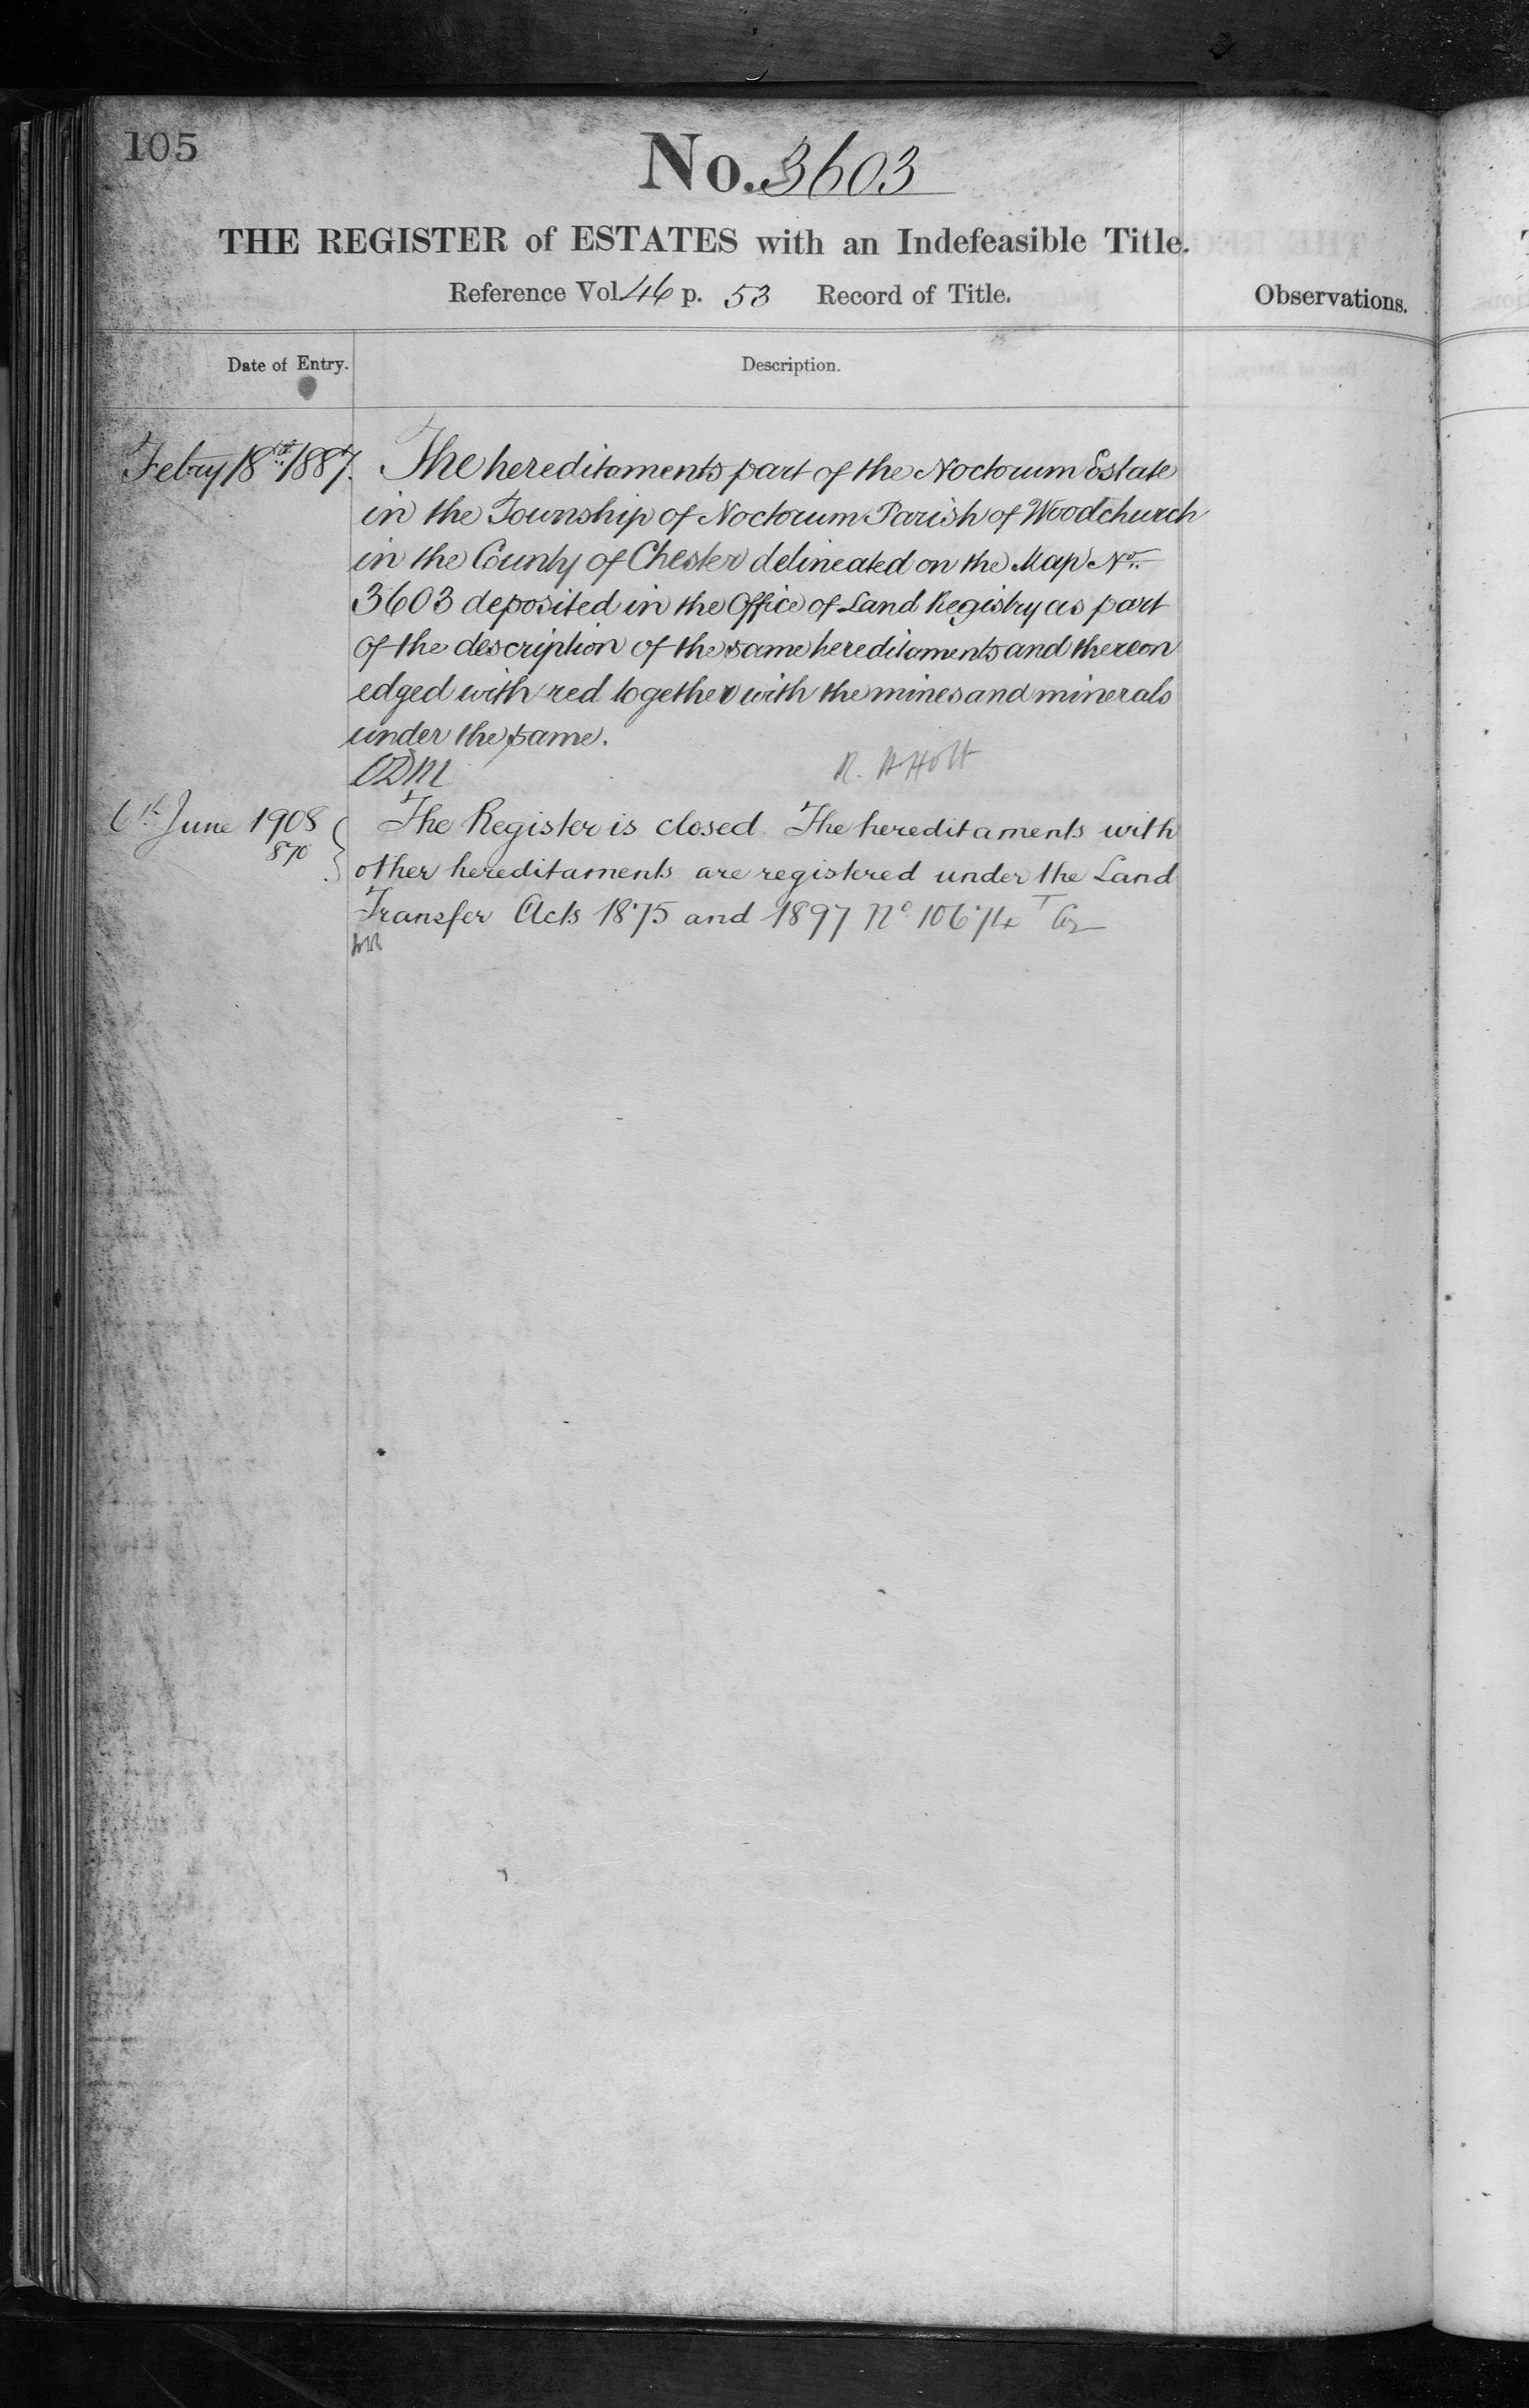 105
No. 3603
THE REGISTER of ESTATES with an Indefeasible Title.
Reference Vol. 46 p. 53 Record of Title.
Observations.
Date of Entry.
Description.
Febry 18th 1887.
The hereditaments part of the Noctorum Estate
in the Township of Noctorum Parish of Woodchurch
in the County of Chester delineated on the Map No.
3603 deposited in the Office of Land Registry as part
of the description of the same hereditaments and thereon
edged with red together with the mines and minerals
under the same.
R. Holt
6th June 1908
870
The Register is closed. The hereditaments with
other hereditaments are registered under the Land
Transfer Acts 1875 and 1897 No. 10674